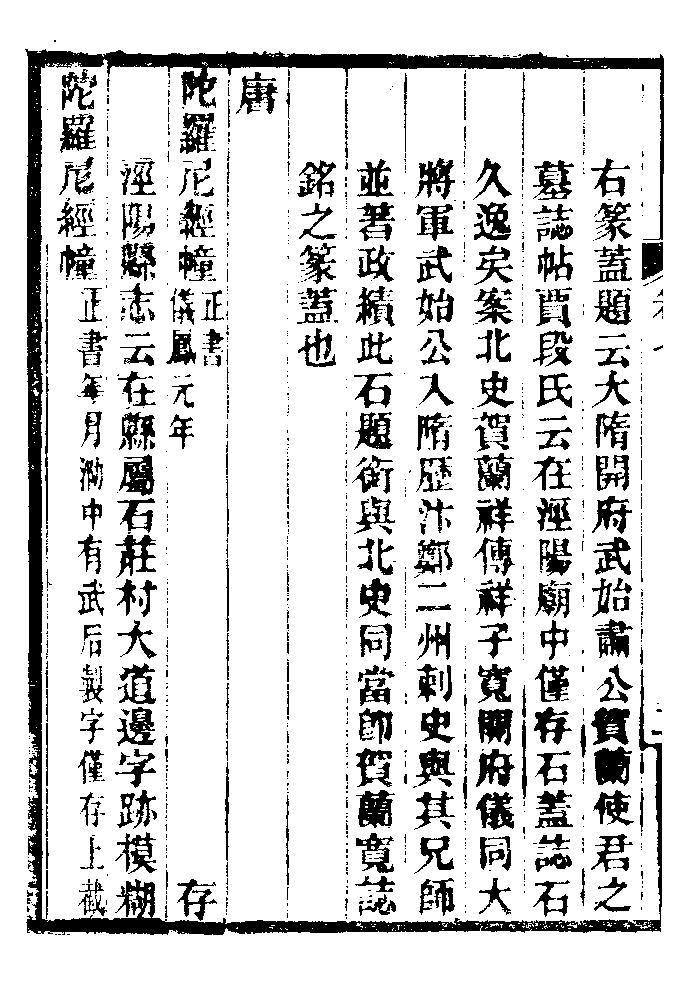 右篆蓋題云大隋開府武始肅公賀蘭使君之
墓誌帖賈段氏云在涇陽廟中僅存石蓋誌石
久逸矣案北史賀蘭祥傳祥子寬開府儀同大
將軍武始公入隋歷汴鄭二州刺史與其兄師
並著政績此石題銜與北史同當卽賀蘭寬誌
銘之篆蓋也
唐
陀羅尼經幢 正書 儀鳳元年 存
涇陽縣志云在縣屬石莊村大道邊字跡模糊
陀羅尼經幢 正書年月泐中有武后製字僅存上截